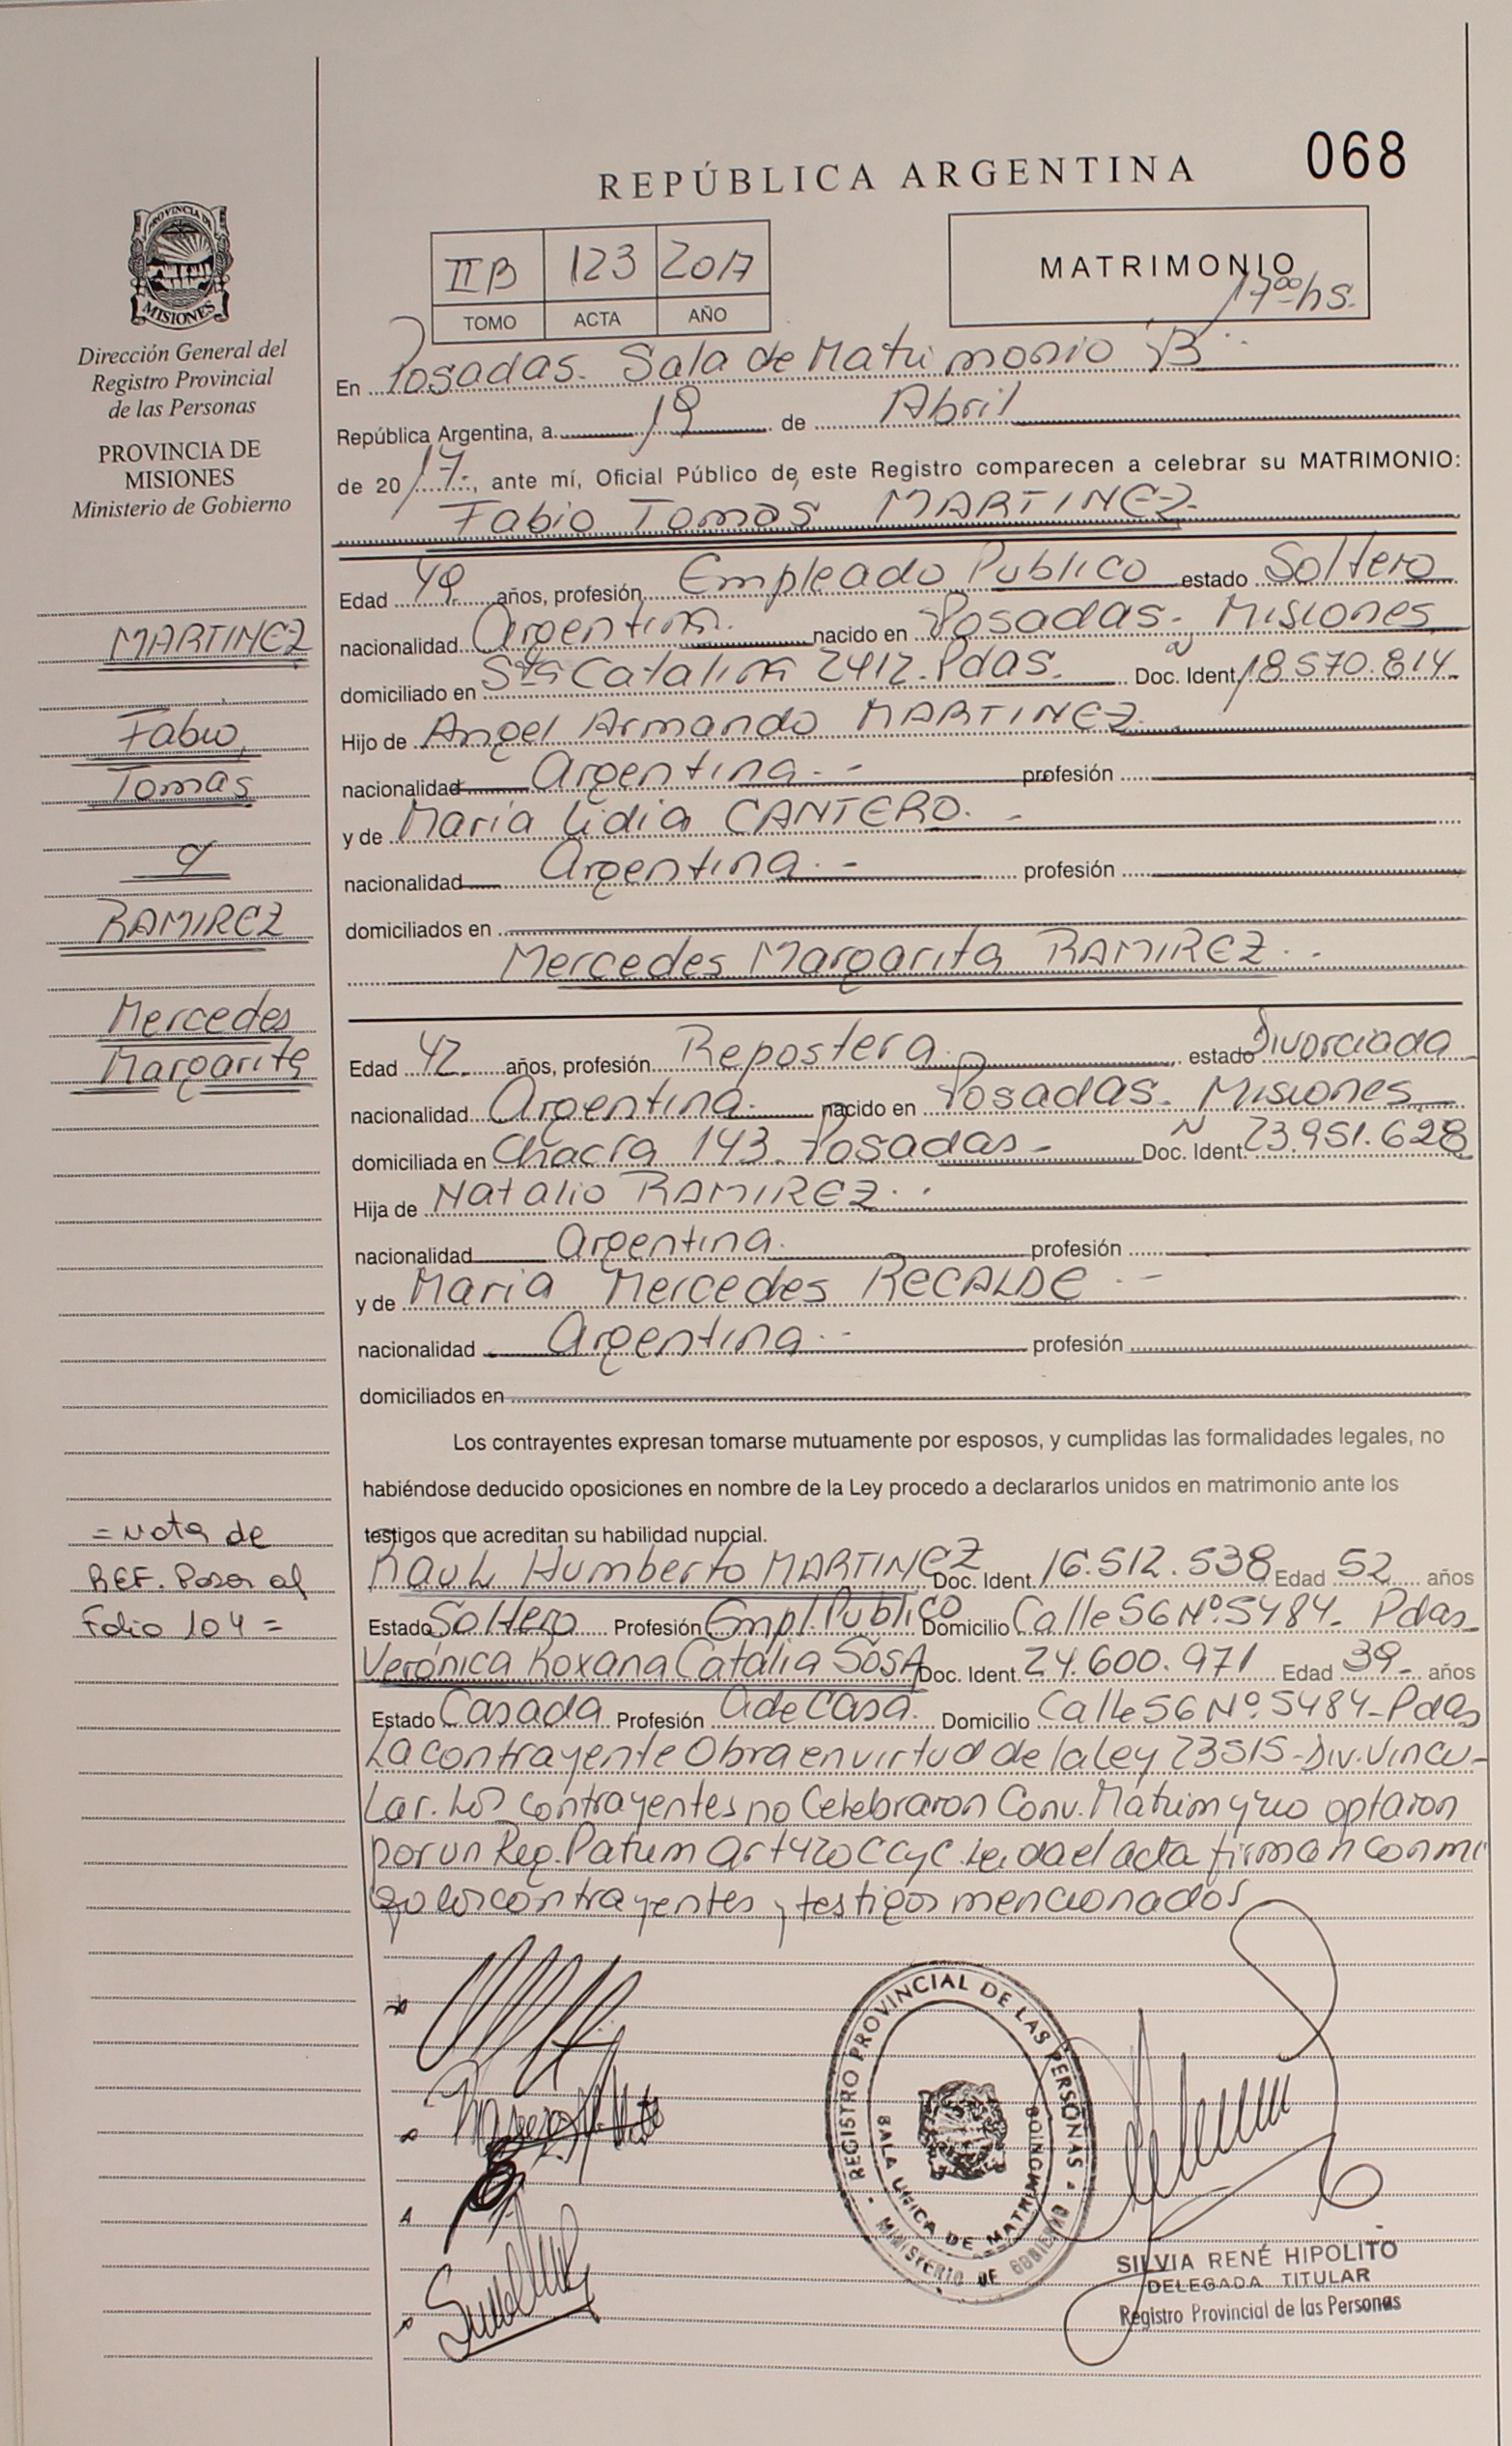 068
REPÚBLICA ARGENTINA
PROVINCIA DE
MISIONES
Dirección General del
Registro Provincial
de las Personas
PROVINCIA DE
MISIONES
Ministerio de Gobierno
IIB 123 2017
TOMO ACTA AÑO
MATRIMONIO
17⁰⁰hs.
En Posadas. Sala de Matrimonio "B"
República Argentina, a 19 de Abril
de 2017, ante mí, Oficial Público de este Registro comparecen a celebrar su MATRIMONIO:
Fabio Tomas MARTINEZ
Edad 49 años, profesión Empleado Publico estado Soltero
nacionalidad Argentina. nacido en Posadas. Misiones
domiciliado en Sta Catalina 2412. Pdas. Doc. Ident. 18.570.814
Hijo de Angel Armando MARTINEZ
nacionalidad Argentina. - profesión
y de María Lidia CANTERO. -
nacionalidad Argentina. - profesión
domiciliados en
Mercedes Margarita RAMIREZ. .
Edad 42. años, profesión Repostera. estado Divorciada
nacionalidad Argentina. nacido en Posadas. Misiones
domiciliada en Chacra 143. Posadas - Doc. Ident. 23.951.628
Hija de Natalio RAMIREZ. .
nacionalidad Argentina. profesión
y de Maria Mercedes RECALDE . -
nacionalidad Argentina. - profesión
domiciliados en
Los contrayentes expresan tomarse mutuamente por esposos, y cumplidas las formalidades legales, no
habiéndose deducido oposiciones en nombre de la Ley procedo a declararlos unidos en matrimonio ante los
testigos que acreditan su habilidad nupcial.
Raul Humberto MARTINEZ Doc. Ident. 16.512.538 Edad 52 años
Estado Soltero Profesión Empl. Publico Domicilio Calle 56 Nº 5484- Pdas-
Verónica Roxana Catalia SOSA Doc. Ident. 24.600.971 Edad 39- años
Estado Casada Profesión AdeCasa. Domicilio Calle 56 Nº 5484-Pdas
La contrayente Obra en virtud de la ley 23515-Div. Vincu-
lar. Los contrayentes no Celebraron Conv. Matrim y no optaron
por un Reg. Patrim Art 420 CCyC. Leida el acta firman conmi
go los contrayentes y testigos mencionados
MARTINEZ
Fabio,
Tomas
y
RAMIREZ
Mercedes
Margarita
= Nota de
REF. Pasar al
Folio 104 =
REGISTRO PROVINCIAL DE LAS PERSONAS
SALA UNICA DE MATRIMONIOS
MINISTERIO DE GOBIERNO
SILVIA RENÉ HIPOLITO
DELEGADA TITULAR
Registro Provincial de las Personas